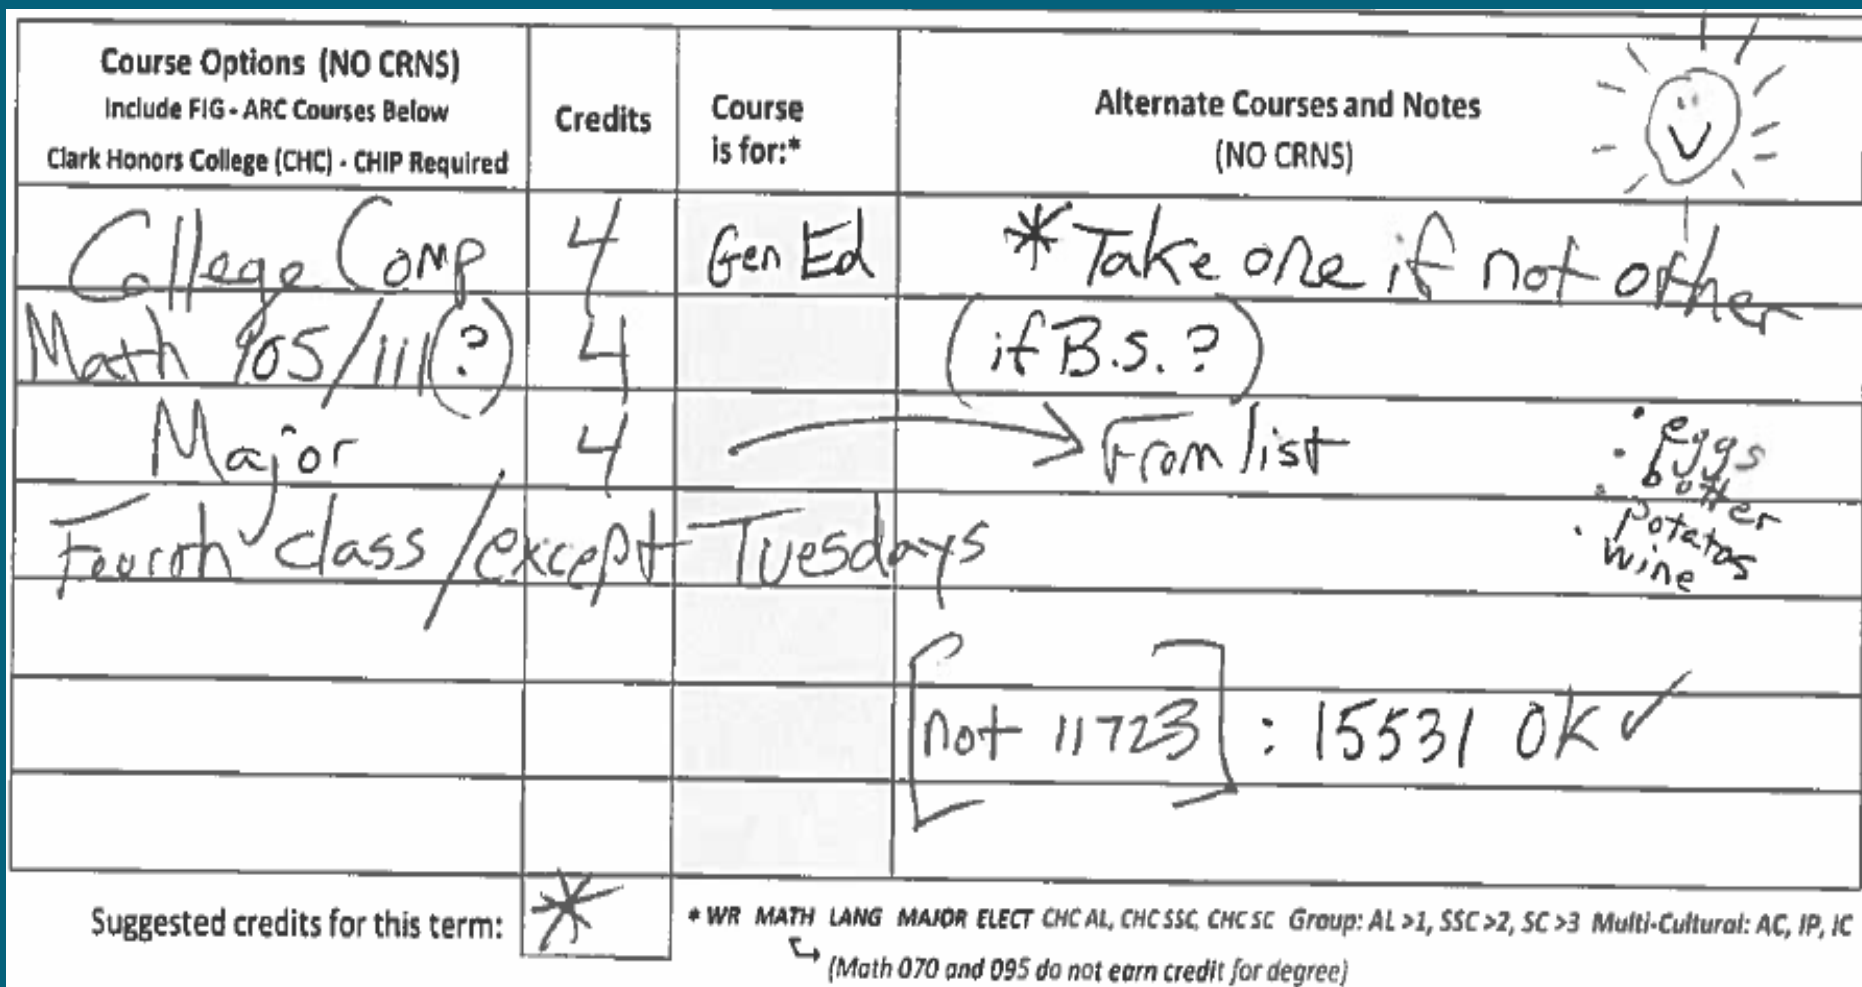 Course Options (NO CRNS)
Include FIG - ARC Courses Below
Clark Honors College (CHC) - CHIP Required
Credits
Course
is for:*
Alternate Courses and Notes
(NO CRNS)
College Comp 4 Gen Ed * Take one if not other
Math 105/111 (?) 4 (if B.S. ?)
Major 4 → From list
Fourth class / except Tuesdays
• eggs
• butter
• potatos
• wine
[not 11723] : 15531 OK ✓
Suggested credits for this term: *
* WR MATH LANG MAJOR ELECT CHC AL, CHC SSC, CHC SC Group: AL >1, SSC >2, SC >3 Multi-Cultural: AC, IP, IC
(Math 070 and 095 do not earn credit for degree)